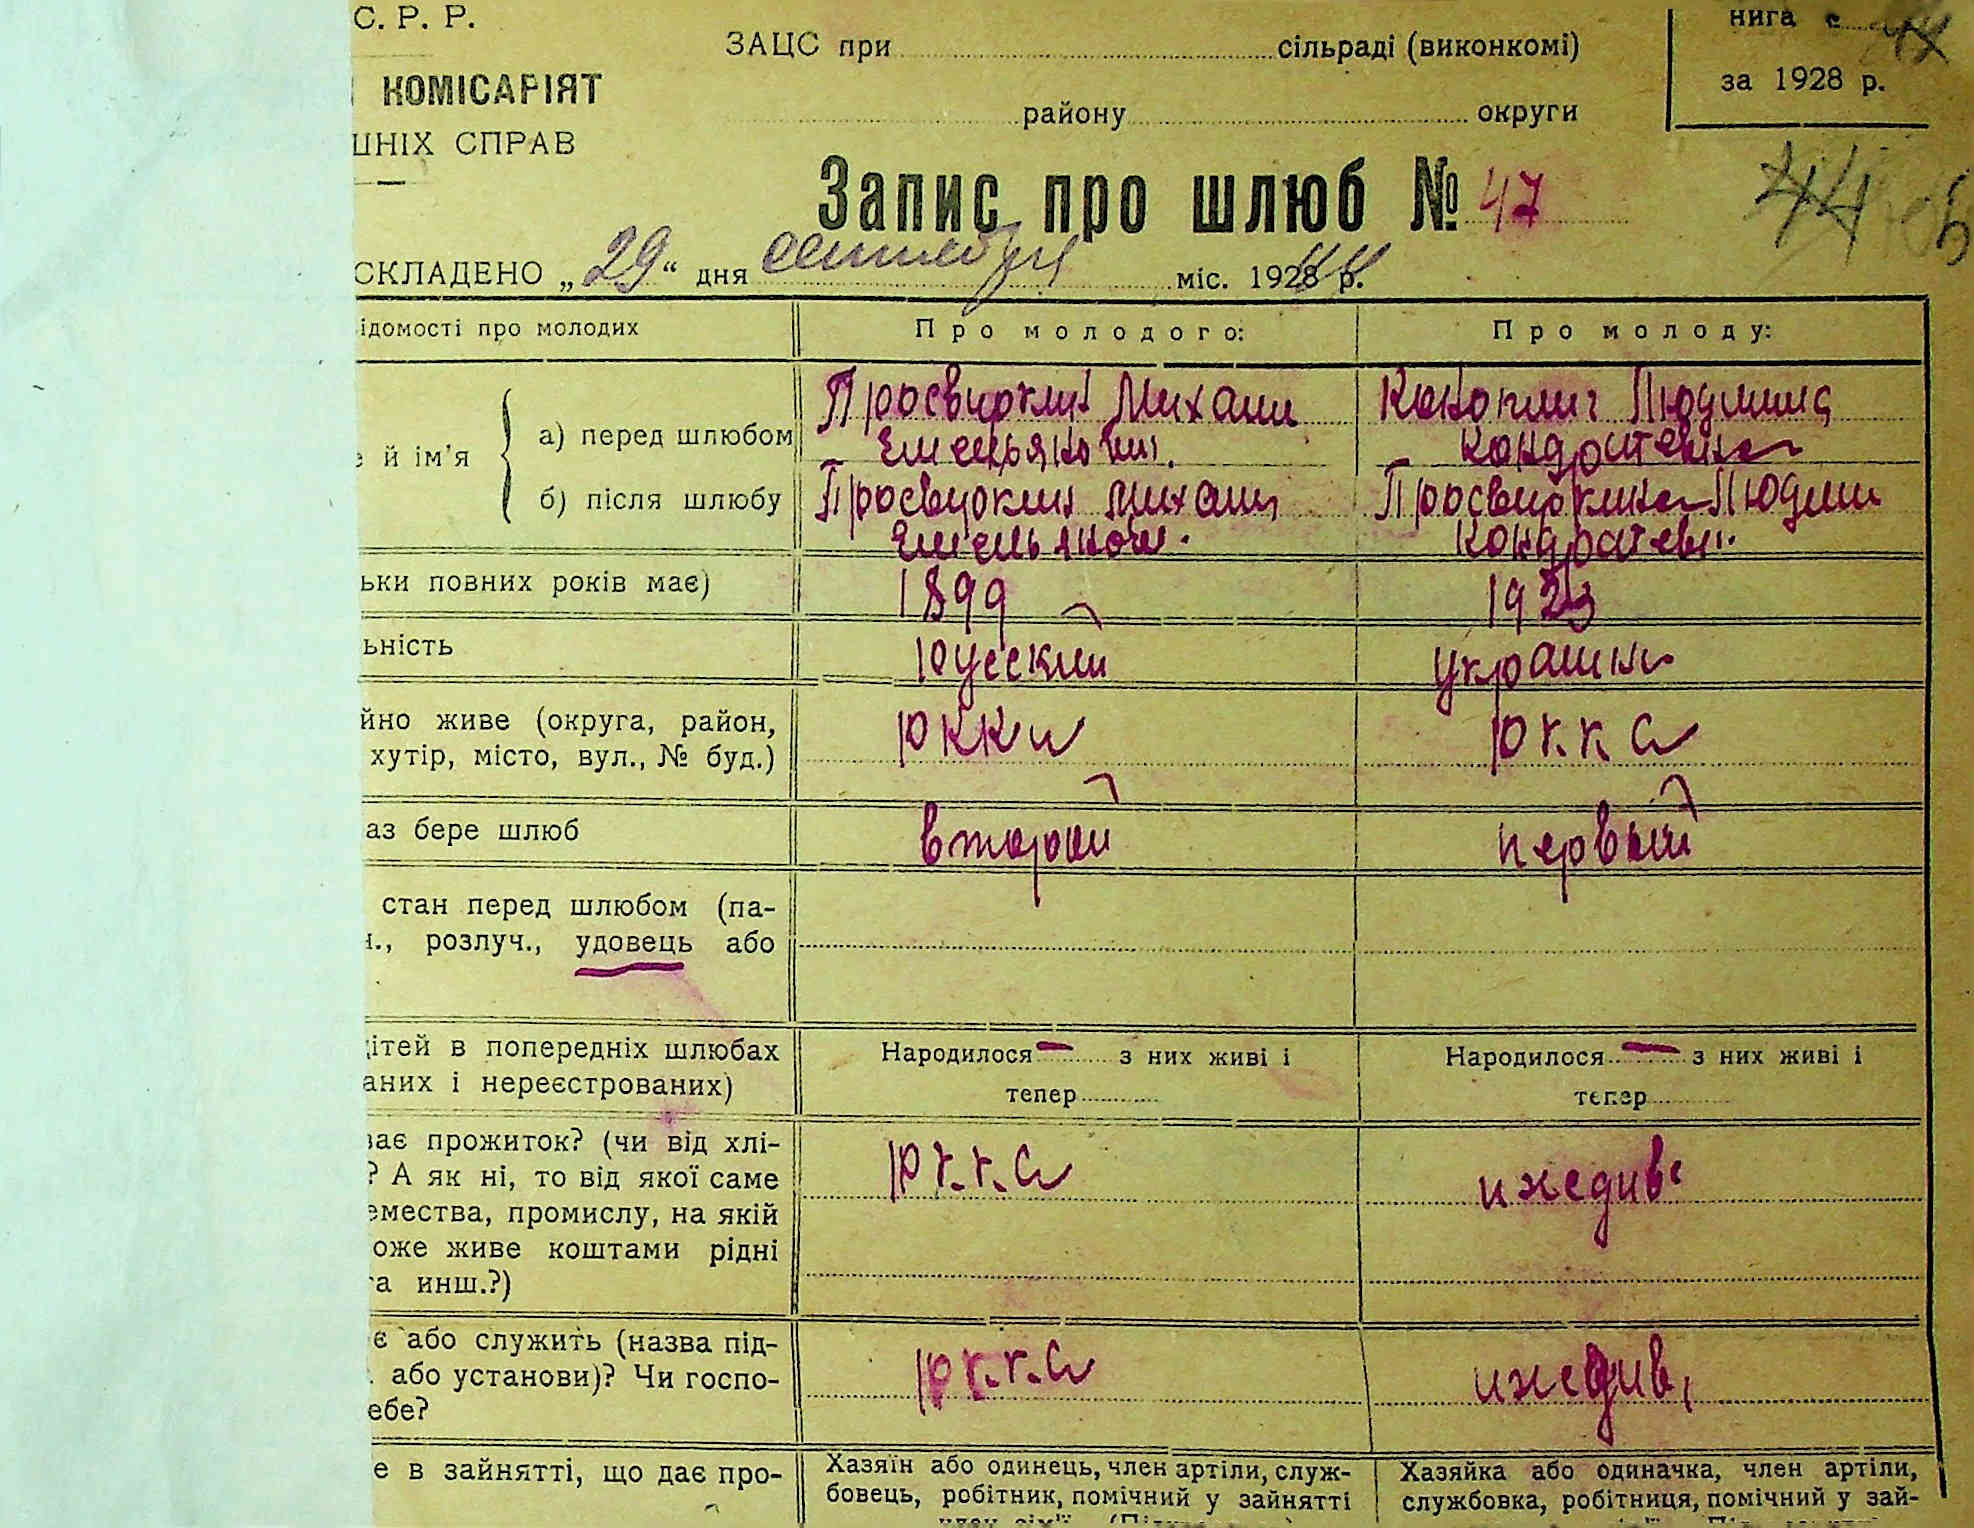 С. Р. Р.
КОМІСАРІЯТ
ШНІХ СПРАВ
ЗАЦС при сільраді (виконкомі)
району округи
нига
за 1928 р.
Запис про шлюб № 47
СКЛАДЕНО „29“ дня сентября міс. 1928 р. 44
ідомості про молодих
Про молодого:
Про молоду:
й ім’я
а) перед шлюбом
Просвиркин Михаил
Емельянович.
Людмила
Кондратевна
б) після шлюбу
Просвиркин Михаил
Емельянови.
Просвиркина Людми
Кондратевн.
ьки повних років має)
1899
1923
ьність
русский
украинк
йно живе (округа, район,
хутір, місто, вул., № буд.)
РККА
Р.К.К.А
аз бере шлюб
второй
первый
стан перед шлюбом (па-
., розлуч., удовець або
ітей в попередніх шлюбах
аних і нереєстрованих)
Народилося — з них живі і
тепер
Народилося — з них живі і
тепер
ає прожиток? (чи від хлі-
? А як ні, то від якої саме
емества, промислу, на якій
оже живе коштами рідні
та инш.?)
Р.К.К.А
иждив
є або служить (назва під-
. або установи)? Чи госпо-
ебе?
Р.К.К.А
иждив,
е в зайнятті, що дає про-
Хазяїн або одинець, член артіли, служ-
бовець, робітник, помічний у зайнятті
Хазяйка або одиначка, член артіли,
службовка, робітниця, помічний у зай-